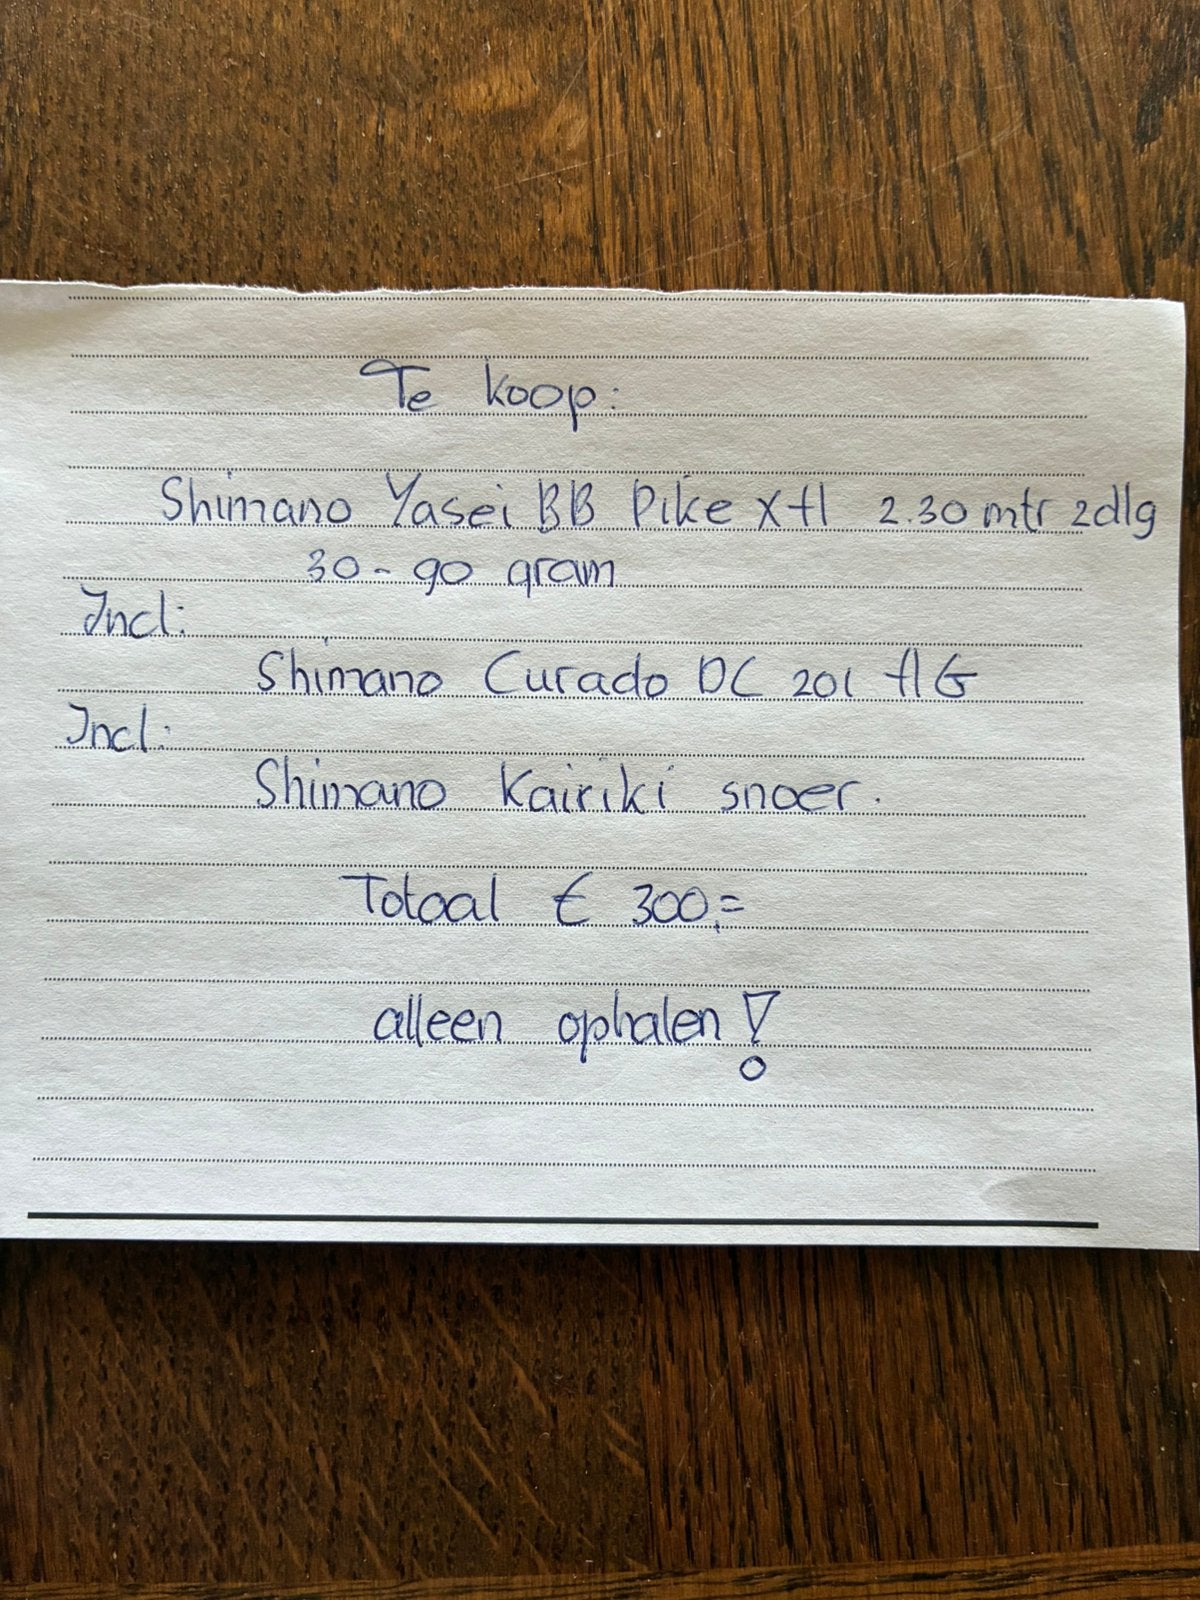 Te koop:
Shimano Yasei BB Pike XH 2.30 mtr 2dlg
30 - 90 gram
Incl:
Shimano Curado DC 201 HG
Incl:
Shimano Kairiki snoer.
Totaal € 300,=
alleen ophalen!